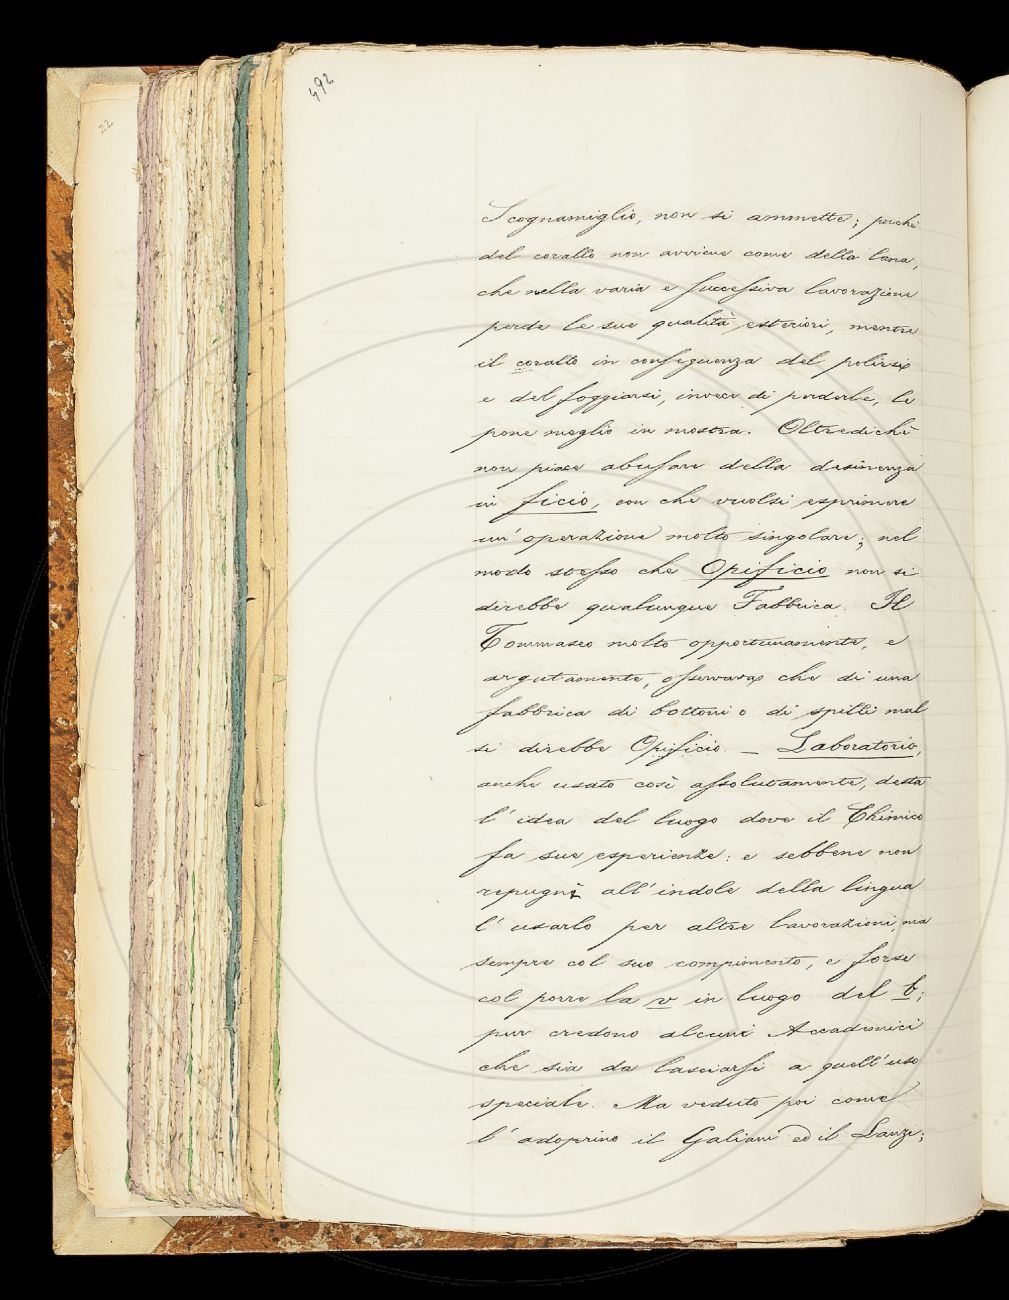 492
22
Scognamiglio, non si ammette; perchè
del corallo non avviene come della lana,
che nella varia e successiva lavorazione
perde le sue qualità esteriori, mentre
il corallo in conseguenza del polirsi
e del foggiarsi, invece di perderle, le
pone meglio in mostra. Oltredichè
non piace abusare della desinenza
in ficio, con che vuolsi esprimere
un' operazione molto singolare; nel
modo stesso che Opificio non si
direbbe qualunque Fabbrica. Il
Tommaseo molto opportunamente, e
argutamente, osservava che di una
fabbrica di bottoni o di spilli mal
si direbbe Opificio. — Laboratorio,
anche usato così assolutamente, desta
l' idea del luogo dove il Chimico
fa sue esperienze: e sebbene non
repugni all' indole della lingua
l' usarlo per altre lavorazioni, ma
sempre col suo compimento, e forse
col porre la v in luogo del b;
pur credono alcuni Accademici
che sia da lasciarsi a quell' uso
speciale. Ma veduto poi come
l' adoprino il Galiani ed il Lanzi;